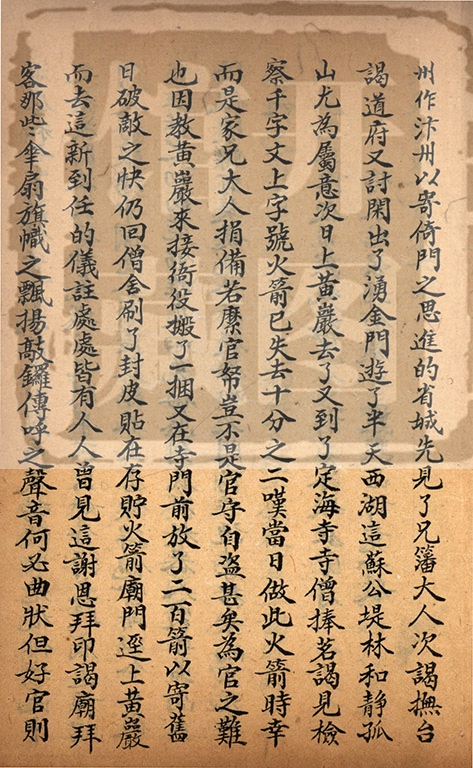 州作汴州以寄倚門之思進的省城先見了兄籓大人次謁撫台
謁道府又討閑出了湧金門遊了半天西湖這蘇公堤林和静孤
山尤為屬意次日上黃巖去了又到了定海寺寺僧捧茗謁見檢
察千字文上字號火箭已失去十分之二嘆當日做此火箭時幸
而是家兄大人捐備若縻官帑豈不是官守自盗甚矣為官之難
也因教黃巖來接衙役搬了一捆又在寺門前放了二百箭以寄舊
日破敵之快仍回僧舍刷了封皮貼在存貯火箭廟門逕上黃巖
而去這新到任的儀註處處皆有人人曽見這謝恩拜印謁廟拜
客那些傘扇旗幟之飄揚敲鑼傳呼之聲音何必曲狀但好官則